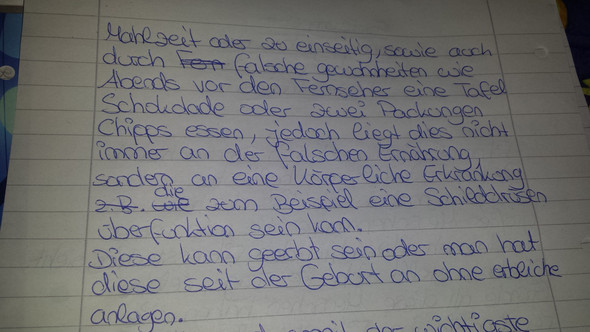 Mahlzeit oder zu einseitig, sowie auch
durch falsche gewohnheiten wie
Abends vor den Fernseher eine Tafel
Schokolade oder zwei Packungen
Chipps essen, jedoch liegt dies nicht
immer an der falschen Ernährung,
sondern an eine Körperliche Erkrankung
z.B. die zum Beispiel eine Schilddrüsen
überfunktion sein kann.
Diese kann geerbt sein oder man hat
diese seit der Geburt an ohne erbliche
anlagen.
der wichtigste